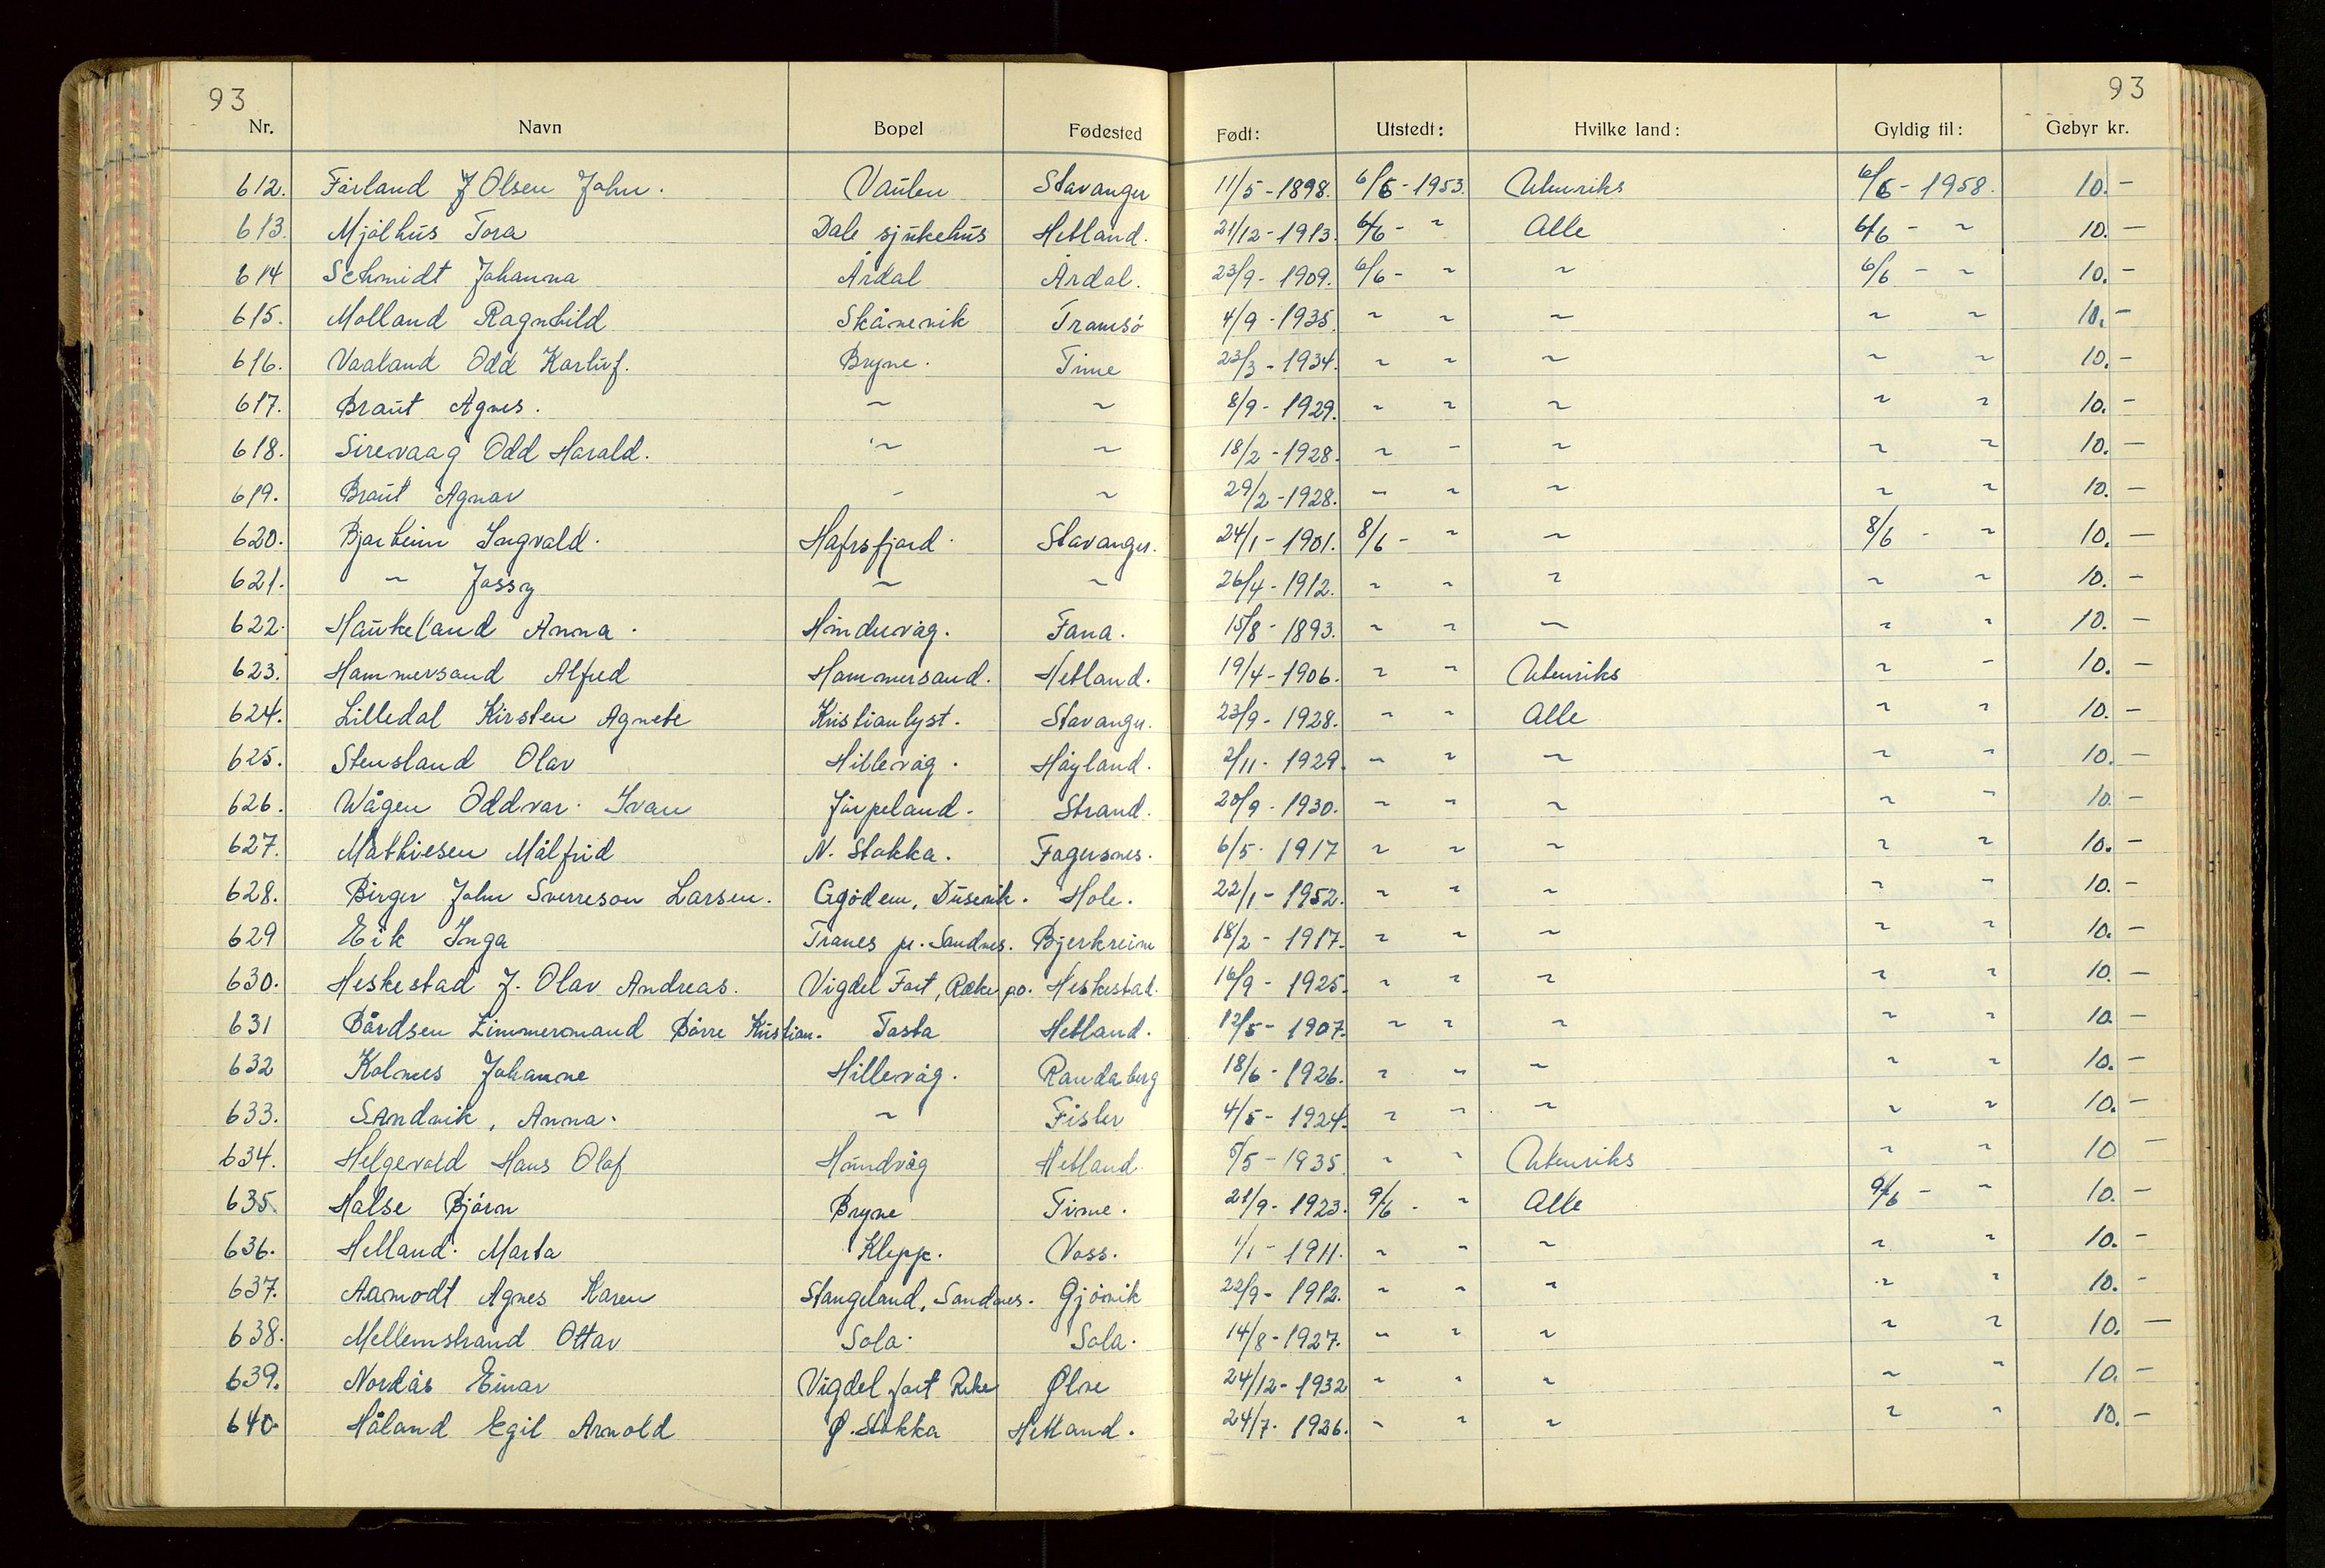 93 93
Nr. Navn Bopel Fødested Født: Utstedt: Hvilke land: Gyldig til: Gebyr kr.
612. Førland J Olsen John. Vaulen Stavanger 11/5-1898. 6/6-1953. Utenriks 6/6-1958. 10.-
613. Mjølhus Tora Dale sjukehus Hetland. 21/12-1913. 6/6- " Alle 6/6- " 10.-
614 Schmidt Johanna Årdal Årdal. 23/9-1909. 6/6- " " 6/6- " 10.-
615. Molland Ragnhild Skånevik Tromsø 4/9-1935. " " " " " 10.-
616. Vaaland Odd Karluf. Bryne. Time 23/3-1934. " " " " " 10.-
617. Braut Agnes. " " 8/9-1929. " " " " " 10.-
618. Sirevaag Odd Harald. " " 18/2-1928. " " " " " 10.-
619. Braut Agnar " " 29/2-1928. " " " " " 10.-
620. Bjorheim Ingvald. Hafrsfjord. Stavanger. 24/1-1901. 8/6- " " 8/6- " 10.-
621. " Jossy " " 26/4-1912. " " " " " 10.-
622. Haukeland Anna. Hinderåg. Fana. 15/8-1893. " " " " " 10.-
623. Hammersand Alfred Hammersand. Hetland. 19/4-1906. " " Utenriks " " 10.-
624. Lilledal Kirsten Agnete Kristianlyst. Stavanger. 23/9-1928. " " Alle " " 10.-
625. Stensland Olav Hillevåg. Høyland. 2/11-1929. " " " " " 10.-
626. Wågen Oddvar Ivan Jørpeland. Strand. 20/9-1930. " " " " " 10.-
627. Mathiesen Målfrid N. Stokka. Fagernes. 6/5-1917 " " " " " 10.-
628. Birger John Sverreson Larsen. Gjødem, Dusevik. Hole. 22/1-1952. " " " " " 10.-
629 Eik Inga Tranes pr. Sandnes. Bjerkreim 18/2-1917. " " " " " 10.-
630. Heskestad J. Olav Andreas. Vigdel Fort, Ræke po. Heskestad. 16/9-1925. " " " " " 10.-
631 Bårdsen Zimmermand Børre Kristian. Tasta Hetland. 12/5-1907. " " " " " 10.-
632 Kolnes Johanne Hillevåg. Randaberg 18/6-1926. " " " " " 10.-
633. Sandvik, Anna. " Fister 4/5-1924. " " " " " 10.-
634. Helgevold Hans Olaf Hundvåg Hetland. 5/5-1935. " " Utenriks " " 10 -
635. Halse Bjørn Bryne Time. 21/9-1923. 9/6- " Alle 9/6- " 10.-
636. Helland. Marta Klepp. Voss. 1/1-1911. " " " " " 10.-
637. Aamodt Agnes Karen Stangeland, Sandnes. Gjøvik 22/9-1912. " " " " " 10.-
638. Mellemstrand Ottar Sola. Sola. 14/8-1927. " " " " " 10.-
639. Nordås Einar Vigdel fort Reke Ølve 24/12-1932 " " " " " 10.-
640. Håland Egil Arnold Ø. Stokka Hetland. 24/7-1936. " " " " " 10.-